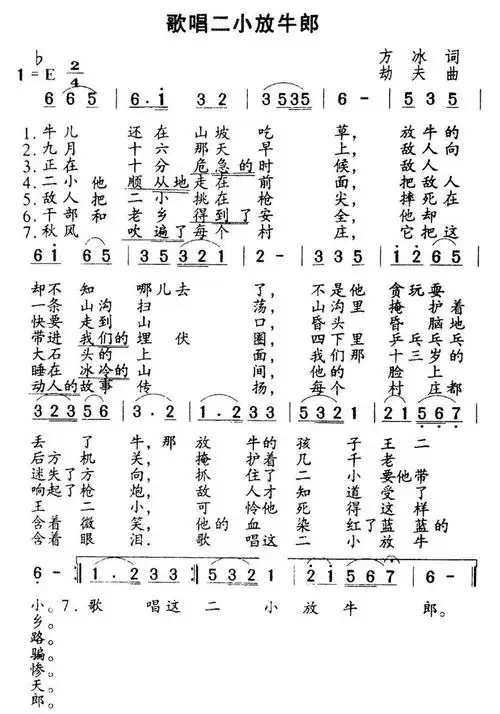 歌唱二小放牛郎
1=♭E 2/4
方冰 词
劫夫 曲
6 6 5 | 6· 1 3 2 | 3 5 3 5 | 6 - | 5 3 5 |
1.牛儿 还在山坡吃 草, 放牛的
2.九月 十六那天早 上, 敌人向
3.正在 十分危急的时 候, 敌人
4.二小他 顺从地走在前 面, 把敌人
5.敌人把 二小挑在枪 尖, 摔死在
6.干部和 老乡得到了安 全, 他却
7.秋风 吹遍了每个村 庄, 它把这
6 1 6 5 | 3 2 3 5 3 2 1 | 2 - | 3 5 3 5 | 6 2 6 5 |
却不知 哪儿去 了, 不是他 贪玩耍
一条山沟扫 荡, 山沟里 掩护着
快要走到山 口, 昏头 昏脑地
带进我们的埋伏 圈, 四下里 乒乓乒乓的
大石头的上 面, 我们那 十三岁的
睡在冰冷的山 间, 他的脸
动人的故事传 扬, 每个 村庄都
3 2 3 5 6 | 3· 2 | 1· 2 3 3 | 5 3 2 1 | 2 1 5 6 7 |
丢了 牛,那 放牛的 孩子 王二
后方机 关, 掩护着 几千老
迷失了方 向, 抓住了 二小要他带
响起了枪 炮, 敌人才 知道受了
王二 小, 可怜他 死得这样
含着微 笑, 他的血 染红了蓝蓝的
含着眼 泪.歌唱这 二小放牛
6 - :‖ 1· 2 3 3 | 5 3 2 1 | 2 1 5 6 7 | 6 - ‖
小。7.歌 唱这 二小放牛 郎。
乡。
路。
骗。
惨。
天。
郎。